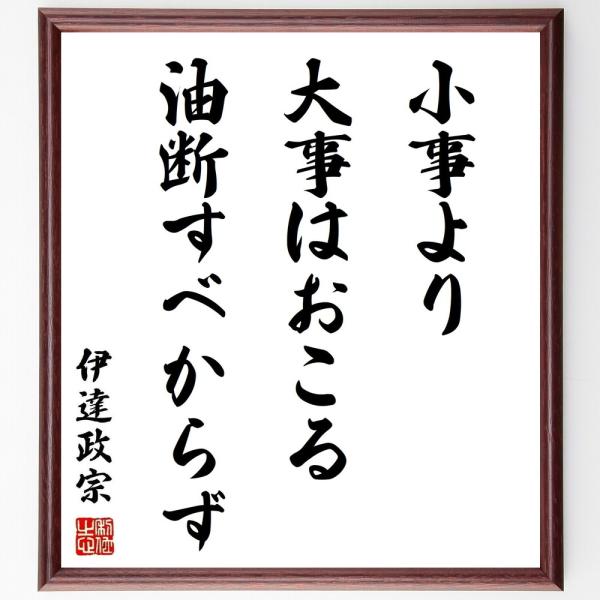 小事より
大事はおこる
油断すべからず
伊達政宗